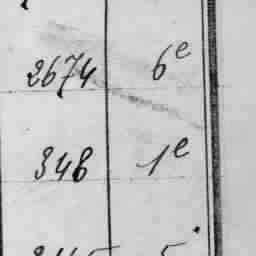 2674 6e
348 1e